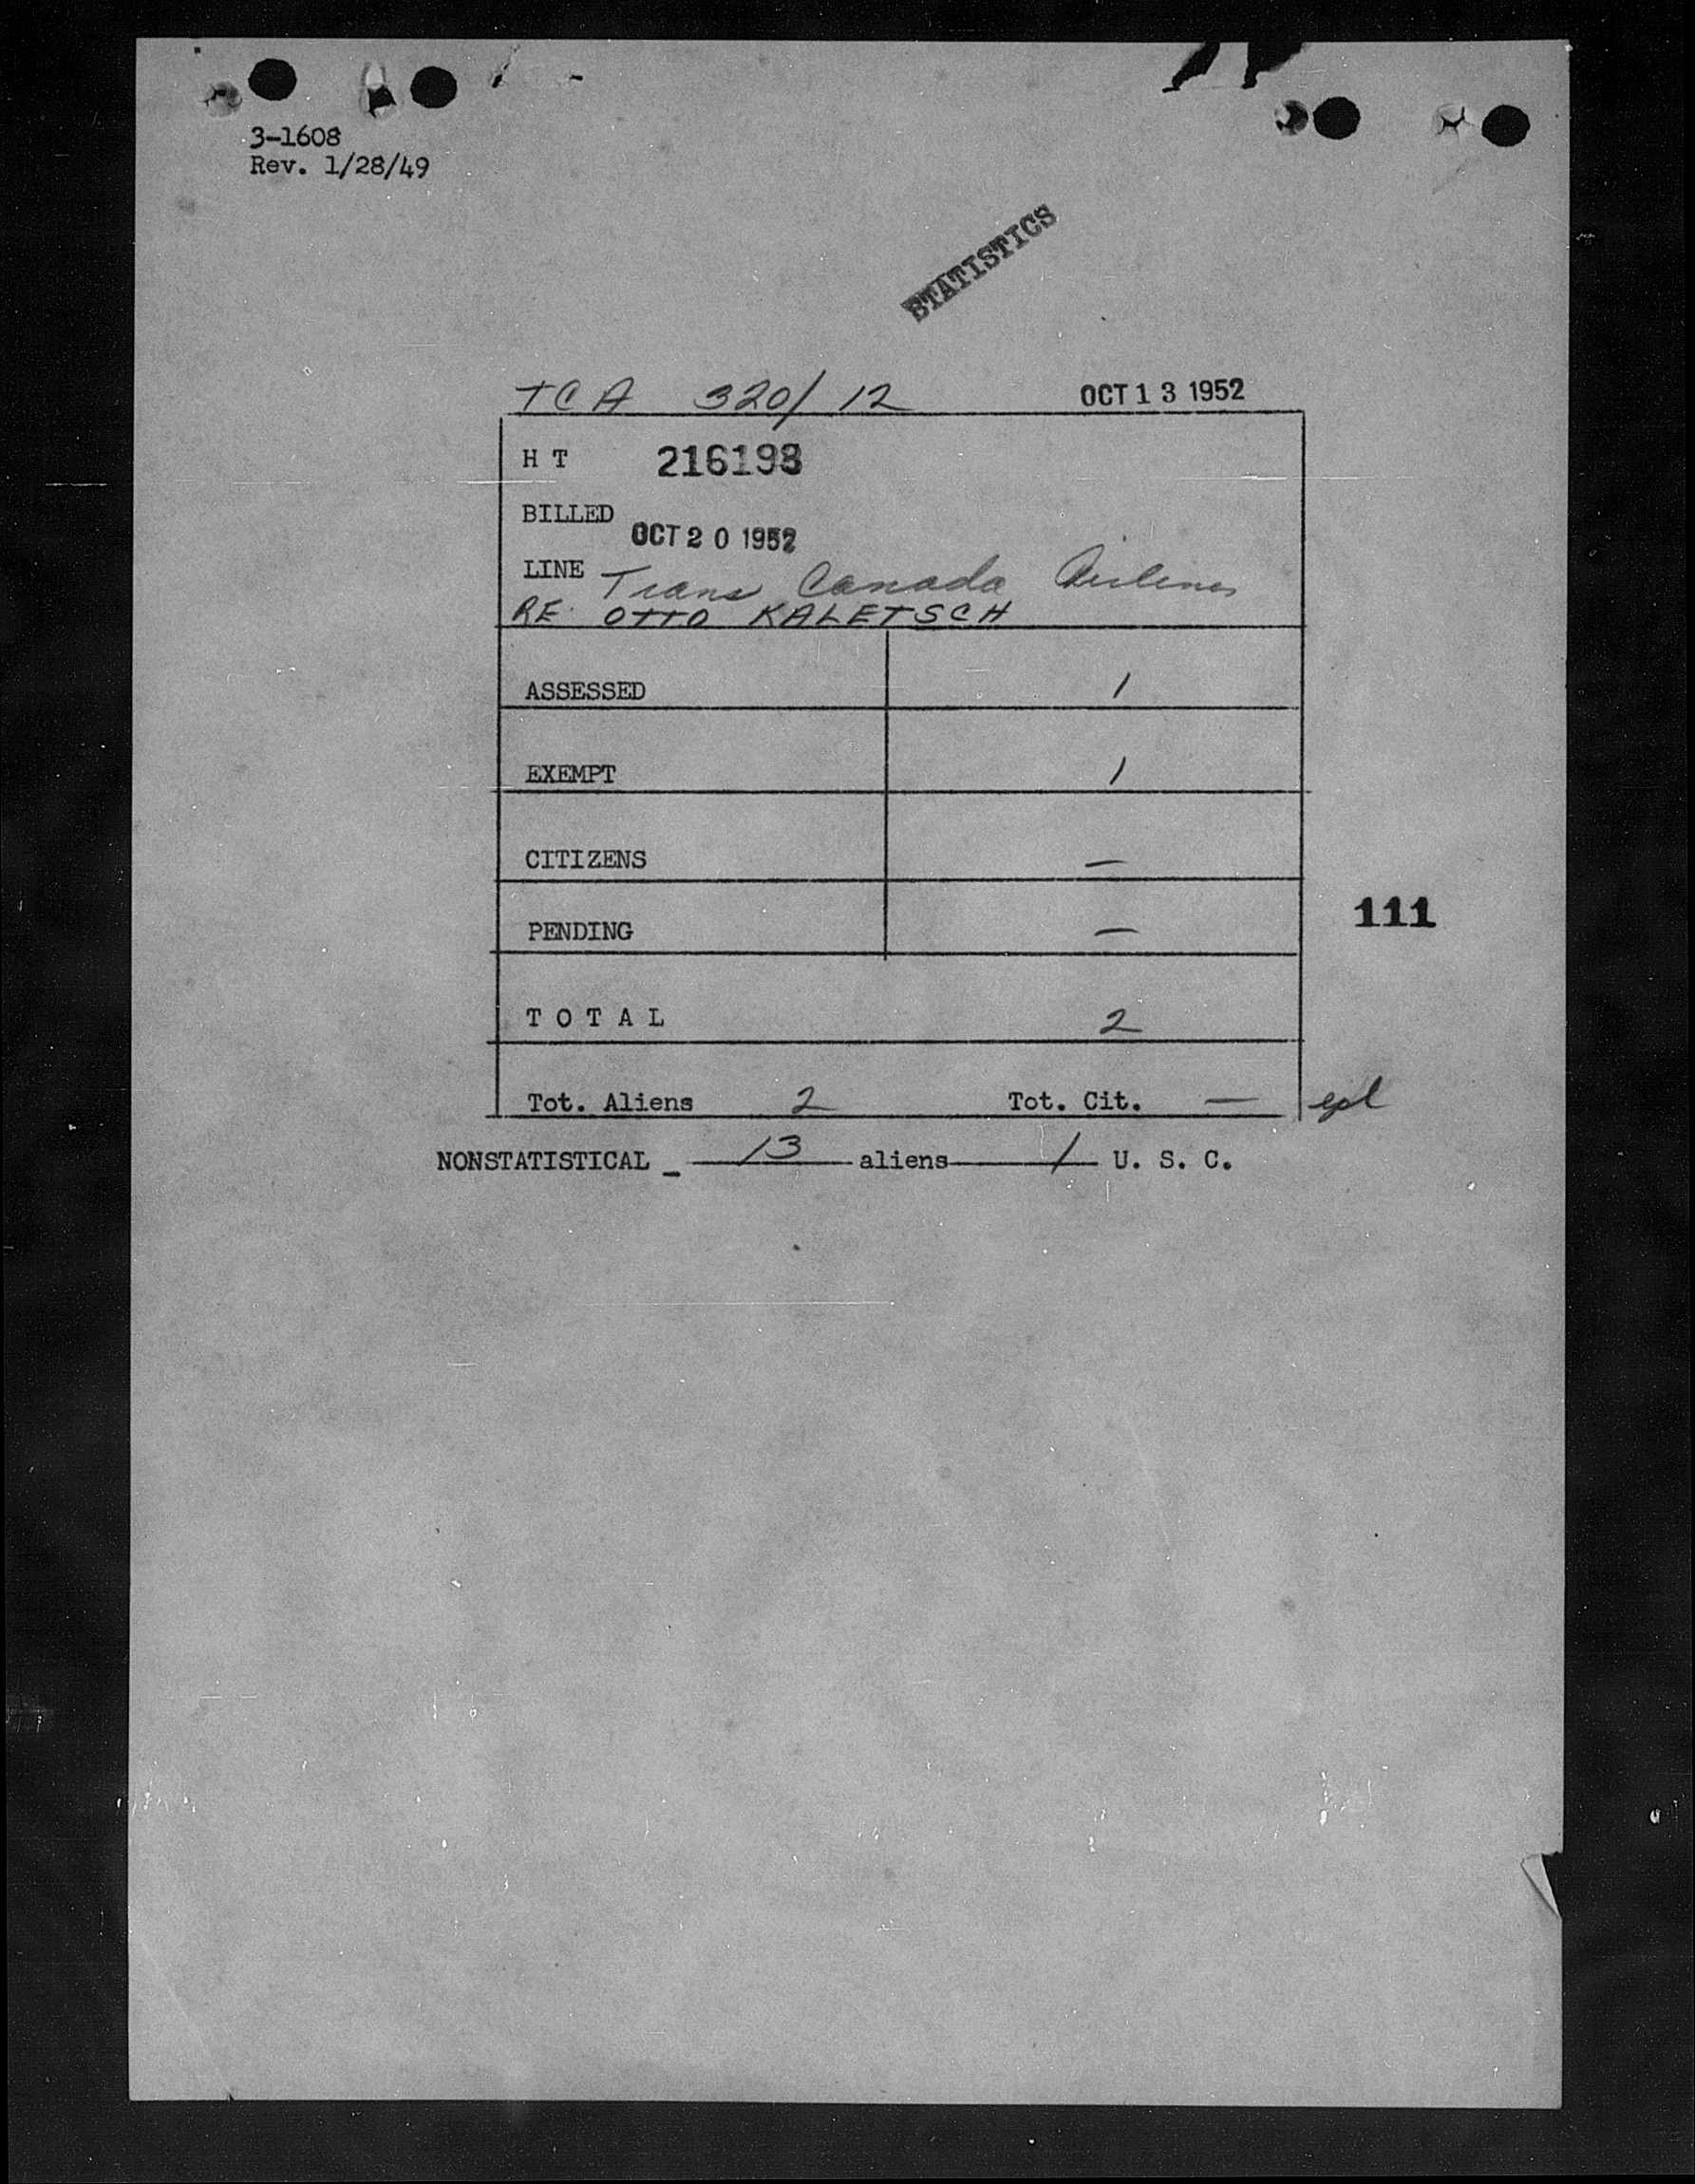 3-1608
Rev. 1/28/49
STATISTICS
TCA 320/12 OCT 13 1952
H T 216198
BILLED OCT 20 1952
LINE Trans Canada Airlines
RE: OTTO KALETSCH
ASSESSED 1
EXEMPT 1
CITIZENS —
PENDING —
111
T O T A L 2
Tot. Aliens 2 Tot. Cit. —
NONSTATISTICAL - 13 aliens 1 U. S. C.